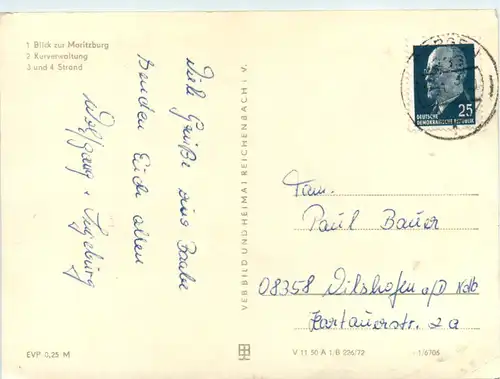 1 Blick zur Moritzburg
2 Kurverwaltung
3 und 4 Strand
Viele Grüße aus Baabe
senden Euch allen
Wolfgang + Ingeburg
VEB BILD UND HEIMAT REICHENBACH I. V.
DEUTSCHE
DEMOKRATISCHE REPUBLIK
25
Fam.
Paul Bauer
08358 Vilshofen a/D Ndb
Kartäuserstr. 2a
EVP 0,25 M
V 11 50 A 1/B 226/72
1/6705